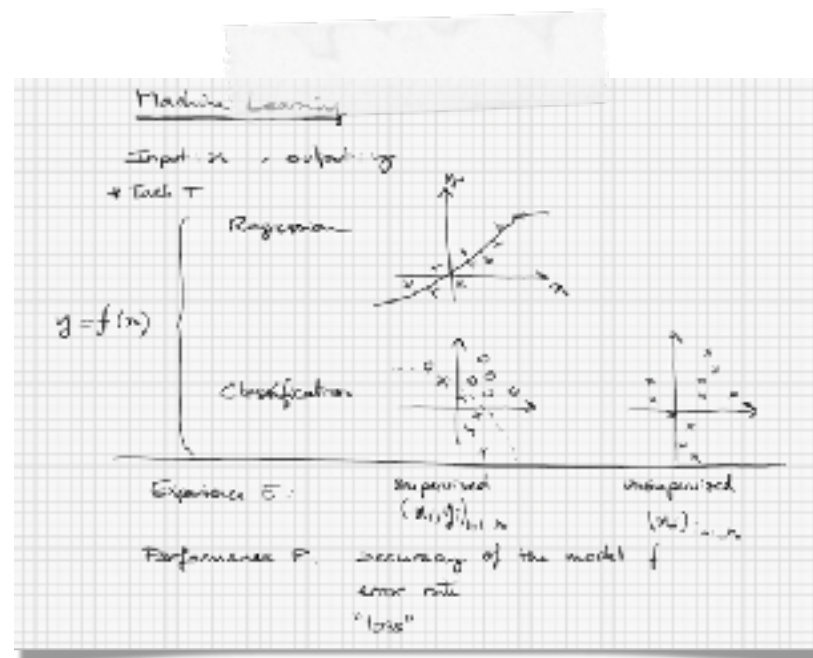 Machine Learning
Input: x , output: y
* Task T
Regression
y = f(x)
Classification
Experience E:
supervised
unsupervised
(xi, yi)
(xi)
Performance P. accuracy of the model f
error rate
"loss"